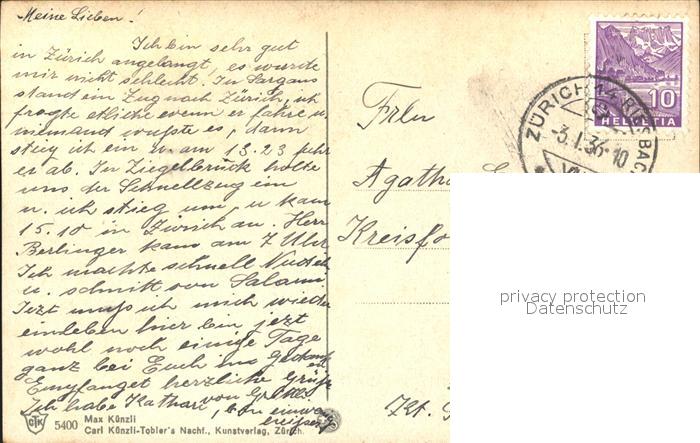 Meine Lieben!
Ich bin sehr gut
in Zürich angelangt, es wurde
mir nicht schlecht. In Sargans
stand ein Zug nach Zürich, ich
fragte etliche wenn er fahre u.
niemand wusste es, dann
stieg ich ein u. um 13.23 fuhr
er ab. In Ziegelbrück holte
uns der Schnellzug ein
u. ich stieg um, u kam
15.10 in Zürich an. Herr
Berlinger kam am 7 Uhr
Ich machte schnell Nudeln
u. schnitt von Salami
Jezt muss ich mich wieder
einleben hier bin jezt
wohl noch einige Tage
ganz bei Euch ins Gedanken
Empfanget herzliche Grüsse
von
Ich habe Kathari,
CTK 5400
Max Künzli
Carl Künzli-Tobler's Nachf., Kunstverlag, Zürich.
Frln
Agatha
Kreisfo
Kt.
10
HELVETIA
ZÜRICH 14
-3.I.36-10
privacy protection
Datenschutz